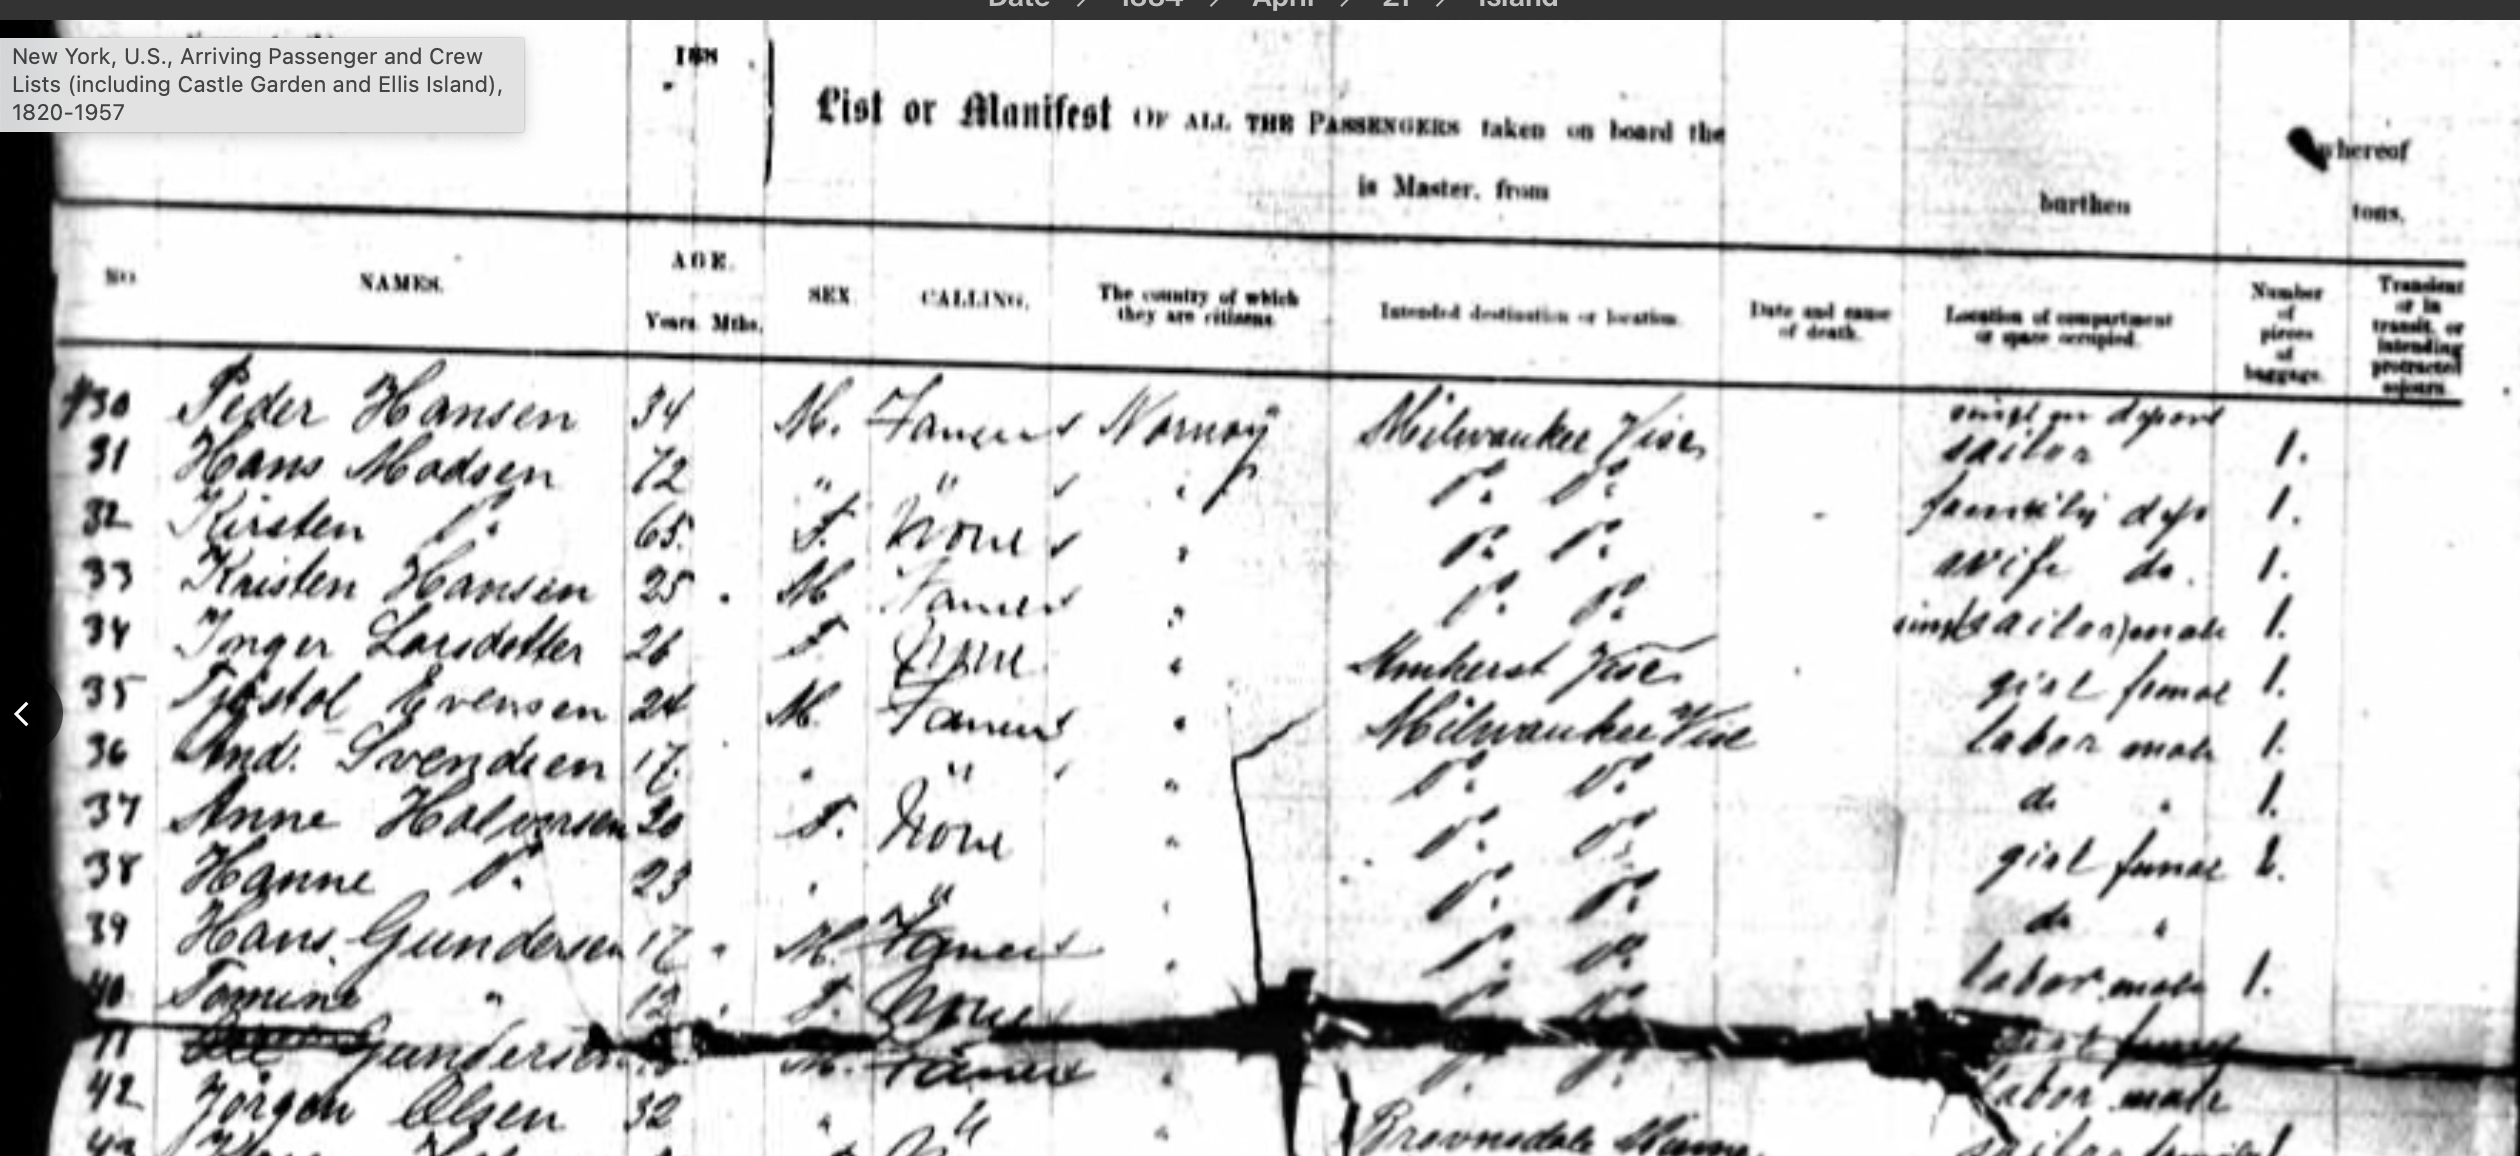 Date > 1884 > April > 21 > Island
New York, U.S., Arriving Passenger and Crew
Lists (including Castle Garden and Ellis Island),
1820-1957
188
List or Manifest OF ALL THE PASSENGERS taken on board the
whereof
is Master, from
burthen
tons.
No. NAMES. AGE. Years. Mths. SEX. CALLING. The country of which they are citizens. Intended destination or location. Date and cause of death. Location of compartment or space occupied. Number of pieces of baggage. Transient or in transit, or intending protracted sojourn.
30 Peder Hansen 34 M. Farmer Norway Milwaukee Wisc. sailor 1.
31 Hans Madsen 72 " " Do. Do. family dep 1.
32 Kirsten Do. 65. F. None Do. Do. wife do. 1.
33 Kristen Hansen 25 M Farmer Do. Do. sailor male 1.
34 Inger Larsdotter 26 F. None Amherst Wisc. girl 1.
35 Evensen 24 M. Farmer " Milwaukee Wisc labor male 1.
36 And. Svendsen 17. " " " Do. Do. do " 1.
37 Anne Halvorsen 20 F. None " Do. Do. girl
38 Hanne Do. 23 " " Do. Do. do "
39 Hans Gundersen 17 M. Farmer Do. Do. labor male 1.
40 Tomine " 12 F. None Do. Do.
41 Gundersen M. Farmer Do. Do. labor male
42 Jörgen Olsen 32 " " " Brownsdale Minn.
43